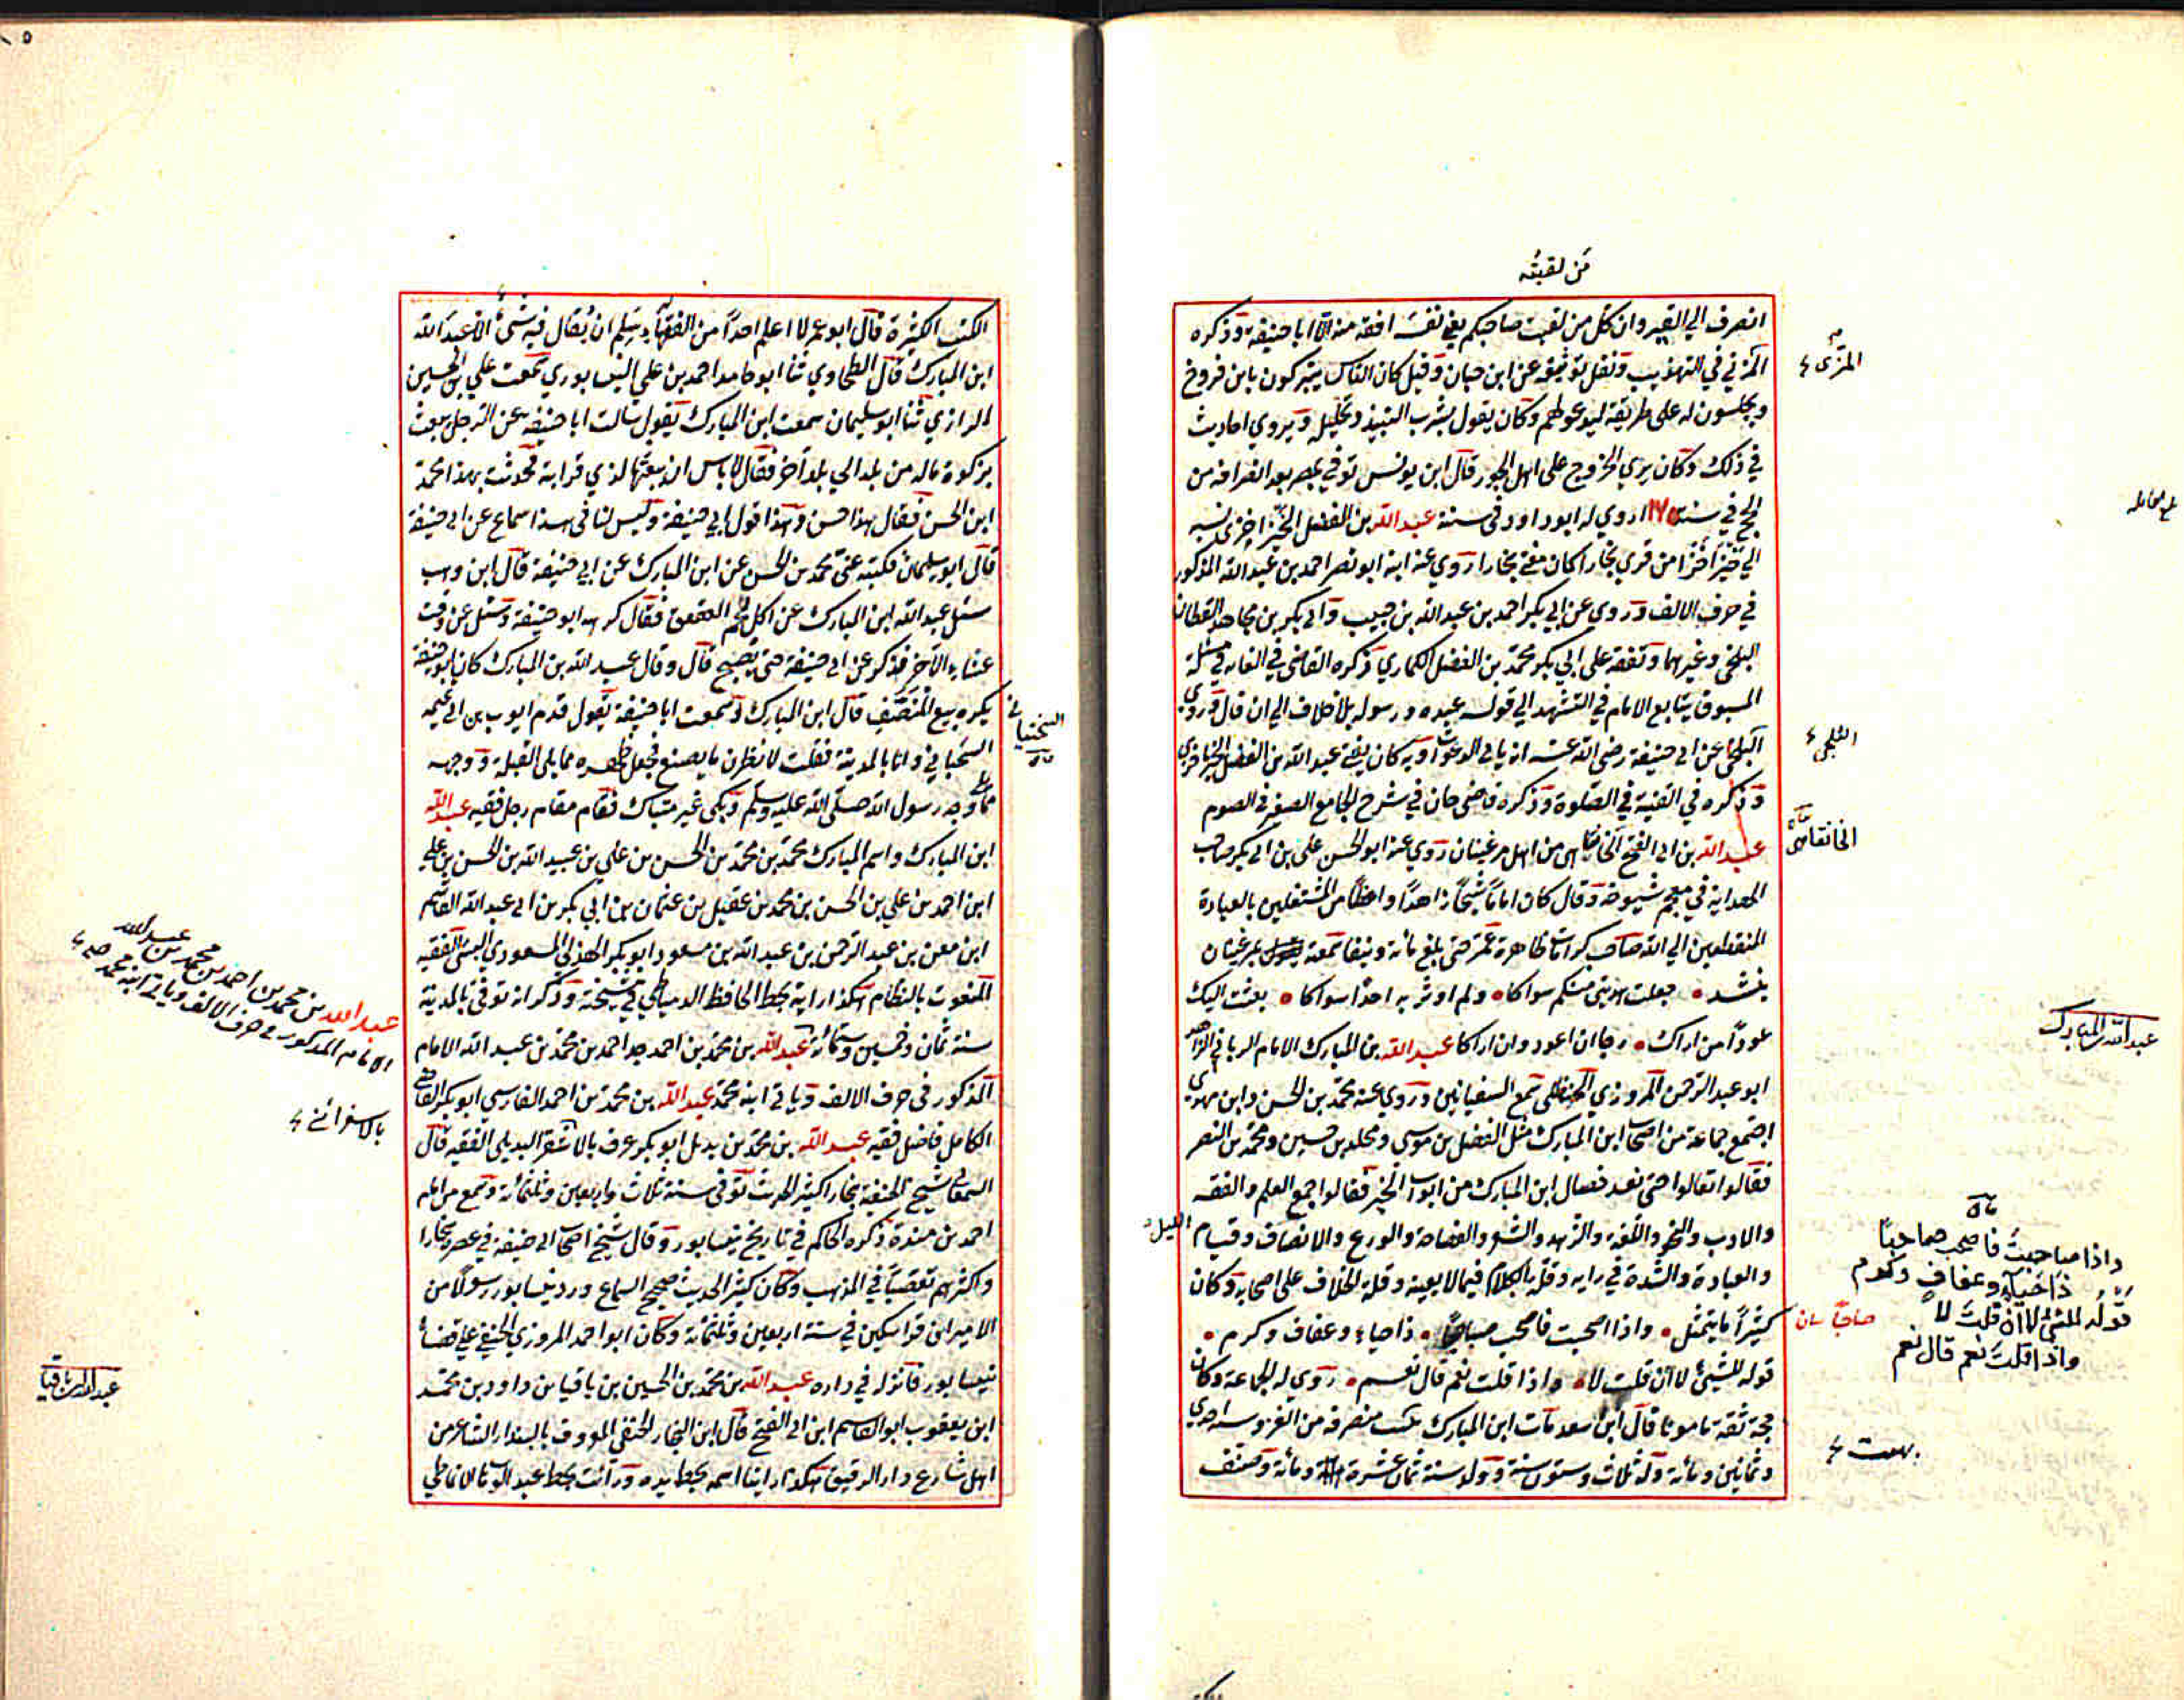 من لقيته
انصرف الي القبر وان كل من لقيت صاحبكم يغي نفسه افقه منه الا ابا حنيفة وذكره
المزني في التهذيب ونقل توثيقه عن ابن حبان وقيل كان الناس يتبركون بابن فروخ
ويجلسون له على طريقه ليدعو لهم وكان يقول بشرب النبيذ وتحليله ويروي احاديث
في ذلك وكان يري الخروج على اهل الجور قال ابن يونس توفي بمصر بعد انصرافه من
الحج في سنة ١٧٥ روي له ابو داود في سننه عبد الله بن الفضل الخيزاخزي نسبه
الي خيزاخزا من قري بخارا كان مفتي بخارا روي عنه ابنه ابو نصر احمد بن عبد الله المذكور
في حرف الالف وروي عن ابي بكر احمد بن عبد الله بن حبيب وابي بكر بن مجاهد القطان
البلخي وغيرهما وتفقه على ابي بكر محمد بن الفضل الكماري ذكره القاضي في الغايه في مسئلة
المسبوق يتابع الامام في التشهد الي قوله عبده ورسوله بلا خلاف الي ان قال وروي
البلخي عن ابي حنيفة رضي الله عنه انه ياتي بالدعوات وبه كان يفتي عبد الله بن الفضل الخيزاخزي
وذكره في القنية في الصلوة وذكره قاضي خان في شرح الجامع الصغير في الصوم
عبد الله بن ابي الفتح الخانقاهي من اهل مرغينان روي عنه ابو الحسن علي بن ابي بكر صاحب
الهداية في معجم شيوخه وقال كان اماما شيخا زاهدا واعظا من المشتغلين بالعبادة
المنقطعين الي الله صاحب كرامات ظاهرة عمر حتي بلغ مائة ونيفا سمعته بمرغينان
ينشد • جعلت هديتي منكم سواكا • ولم اوثر به احدا سواكا • بعثت اليك
عودا من اراك • رجا ان اعود وان اراكا عبد الله بن المبارك الامام الرباني الزاهد
ابو عبد الرحمن المروزي الحنظلي سمع السفيانين وروي عنه محمد بن الحسن وابن مهدي
اجتمع جماعة من اصحاب ابن المبارك مثل الفضل بن موسى ومخلد بن حسين ومحمد بن النضر
فقالوا تعالوا حتى نعد خصال ابن المبارك من ابواب الخير فقالوا جمع العلم والفقه
والادب والنحو واللغة والزهد والشعر والفصاحة والورع والانصاف وقيام الليل
والعبادة والشدة في رايه وقلة الكلام فيما لا يعينه وقلة الخلاف على اصحابه وكان
كثيرا ما يتمثل • واذا صحبت فاصحب صاحبا • ذا حياء وعفاف وكرم •
قوله للشيئ لا ان قلت لا • واذا قلت نعم قال نعم • روي له الجماعة وكان
حجة ثقة مامونا قال ابن سعد مات ابن المبارك بهيت منصرفه من الغزو سنة احدي
وثمانين ومائة وله ثلاث وستون سنة وولد سنة ثمان عشرة ومائة وصنف
المزي
البلخي
الخانقاهي
عبد الله بن المبارك
واذا صاحبت فاصحب صاحبا
ذا حياء وعفاف وكرم
قوله للشئ لا ان قلت لا
واذا قلت نعم قال نعم
صاحبا
بهيت
الكتب الكثيرة قال ابو عمر لا اعلم احدا من الفقهاء سلم ان يقال فيه شئ الا عبد الله
ابن المبارك قال الطحاوي ثنا ابو حامد احمد بن علي النيسابوري سمعت علي بن الحسين
الرازي ثنا ابو سليمان سمعت ابن المبارك يقول سالت ابا حنيفة عن الرجل يبعث
بزكوة ماله من بلد الي بلد آخر فقال لا باس ان يبعثها لذي قرابة فحدثت بهذا محمد
ابن الحسن فقال هذا حسن وهذا قول ابي حنيفة وليس لنا في هذا سماع عن ابي حنيفة
قال ابو سليمان فكتبه عني محمد بن الحسن عن ابن المبارك عن ابي حنيفة قال ابن وهب
سئل عبد الله ابن المبارك عن اكل لحم العقعق فقال كرهه ابو حنيفة وسئل عن وقت
عشاء الآخر فذكر عن ابي حنيفة حتى يصبح قال وقال عبد الله بن المبارك كان ابو حنيفة
يكره بيع المنصف قال ابن المبارك وسمعت ابا حنيفة يقول قدم ايوب بن ابي تميمه
السختياني وانا بالمدينة فقلت لانظرن ما يصنع فجعل ظهره مما يلي القبلة ووجهه
مما يلي وجه رسول الله صلى الله عليه وسلم وبكى غير متباك فقام مقام رجل فقيه عبد الله
ابن المبارك واسم المبارك محمد بن محمد بن الحسن بن علي بن عبيد الله بن الحسن بن علي
ابن احمد بن علي بن الحسن بن محمد بن عقيل بن عثمان بن ابي بكر بن ابي عبد الله القاسم
ابن معن بن عبد الرحمن بن عبد الله بن مسعود ابو بكر الهذلي المسعودي البستي الفقيه
المنعوت بالنظام هكذا رايته بخط الحافظ الدمياطي في مشيخته وذكر انه توفي بالمدينة
سنة ثمان وخمسين وستمائة عبد الله بن محمد بن احمد جد احمد بن محمد بن عبد الله الامام
المذكور في حرف الالف وياتي ابنه محمد عبد الله بن محمد بن احمد الفارسي ابو بكر القاضي
الكامل فاضل فقيه عبد الله بن محمد بن بديل ابو بكر عرف بالاشقر البديلي الفقيه قال
السمعاني شيخ الحنفية ببخارا كثير الحديث توفي سنة ثلاث واربعين وثلثمائة وسمع من
احمد بن مندة ذكره الحاكم في تاريخ نيسابور وقال شيخ اصحاب ابي حنيفة في عصره ببخارا
واكثرهم تعصبا في المذهب وكان كثير الحديث صحيح السماع ورد نيسابور رسولا من
الامير ابن قراتكين في سنة اربعين وثلثمائة وكان ابو احمد المروزي الحنفي علي قضاء
نيسابور فانزله في داره عبد الله بن محمد بن الحسين بن باقيا بن داود بن محمد
ابن يعقوب ابو القاسم ابن ابي الفتح قال ابن النجار الحنفي المعروف بالبندار الشاعر من
اهل شارع دار الرقيق هكذا راينا اسمه بخط يده ورأيت بخط عبد الوهاب الانماطي
السختياني
عبد الله بن محمد بن احمد بن محمد بن عبد الله
الامام المذكور في حرف الالف وياتي ابنه محمد
عبد الله بن باقيا